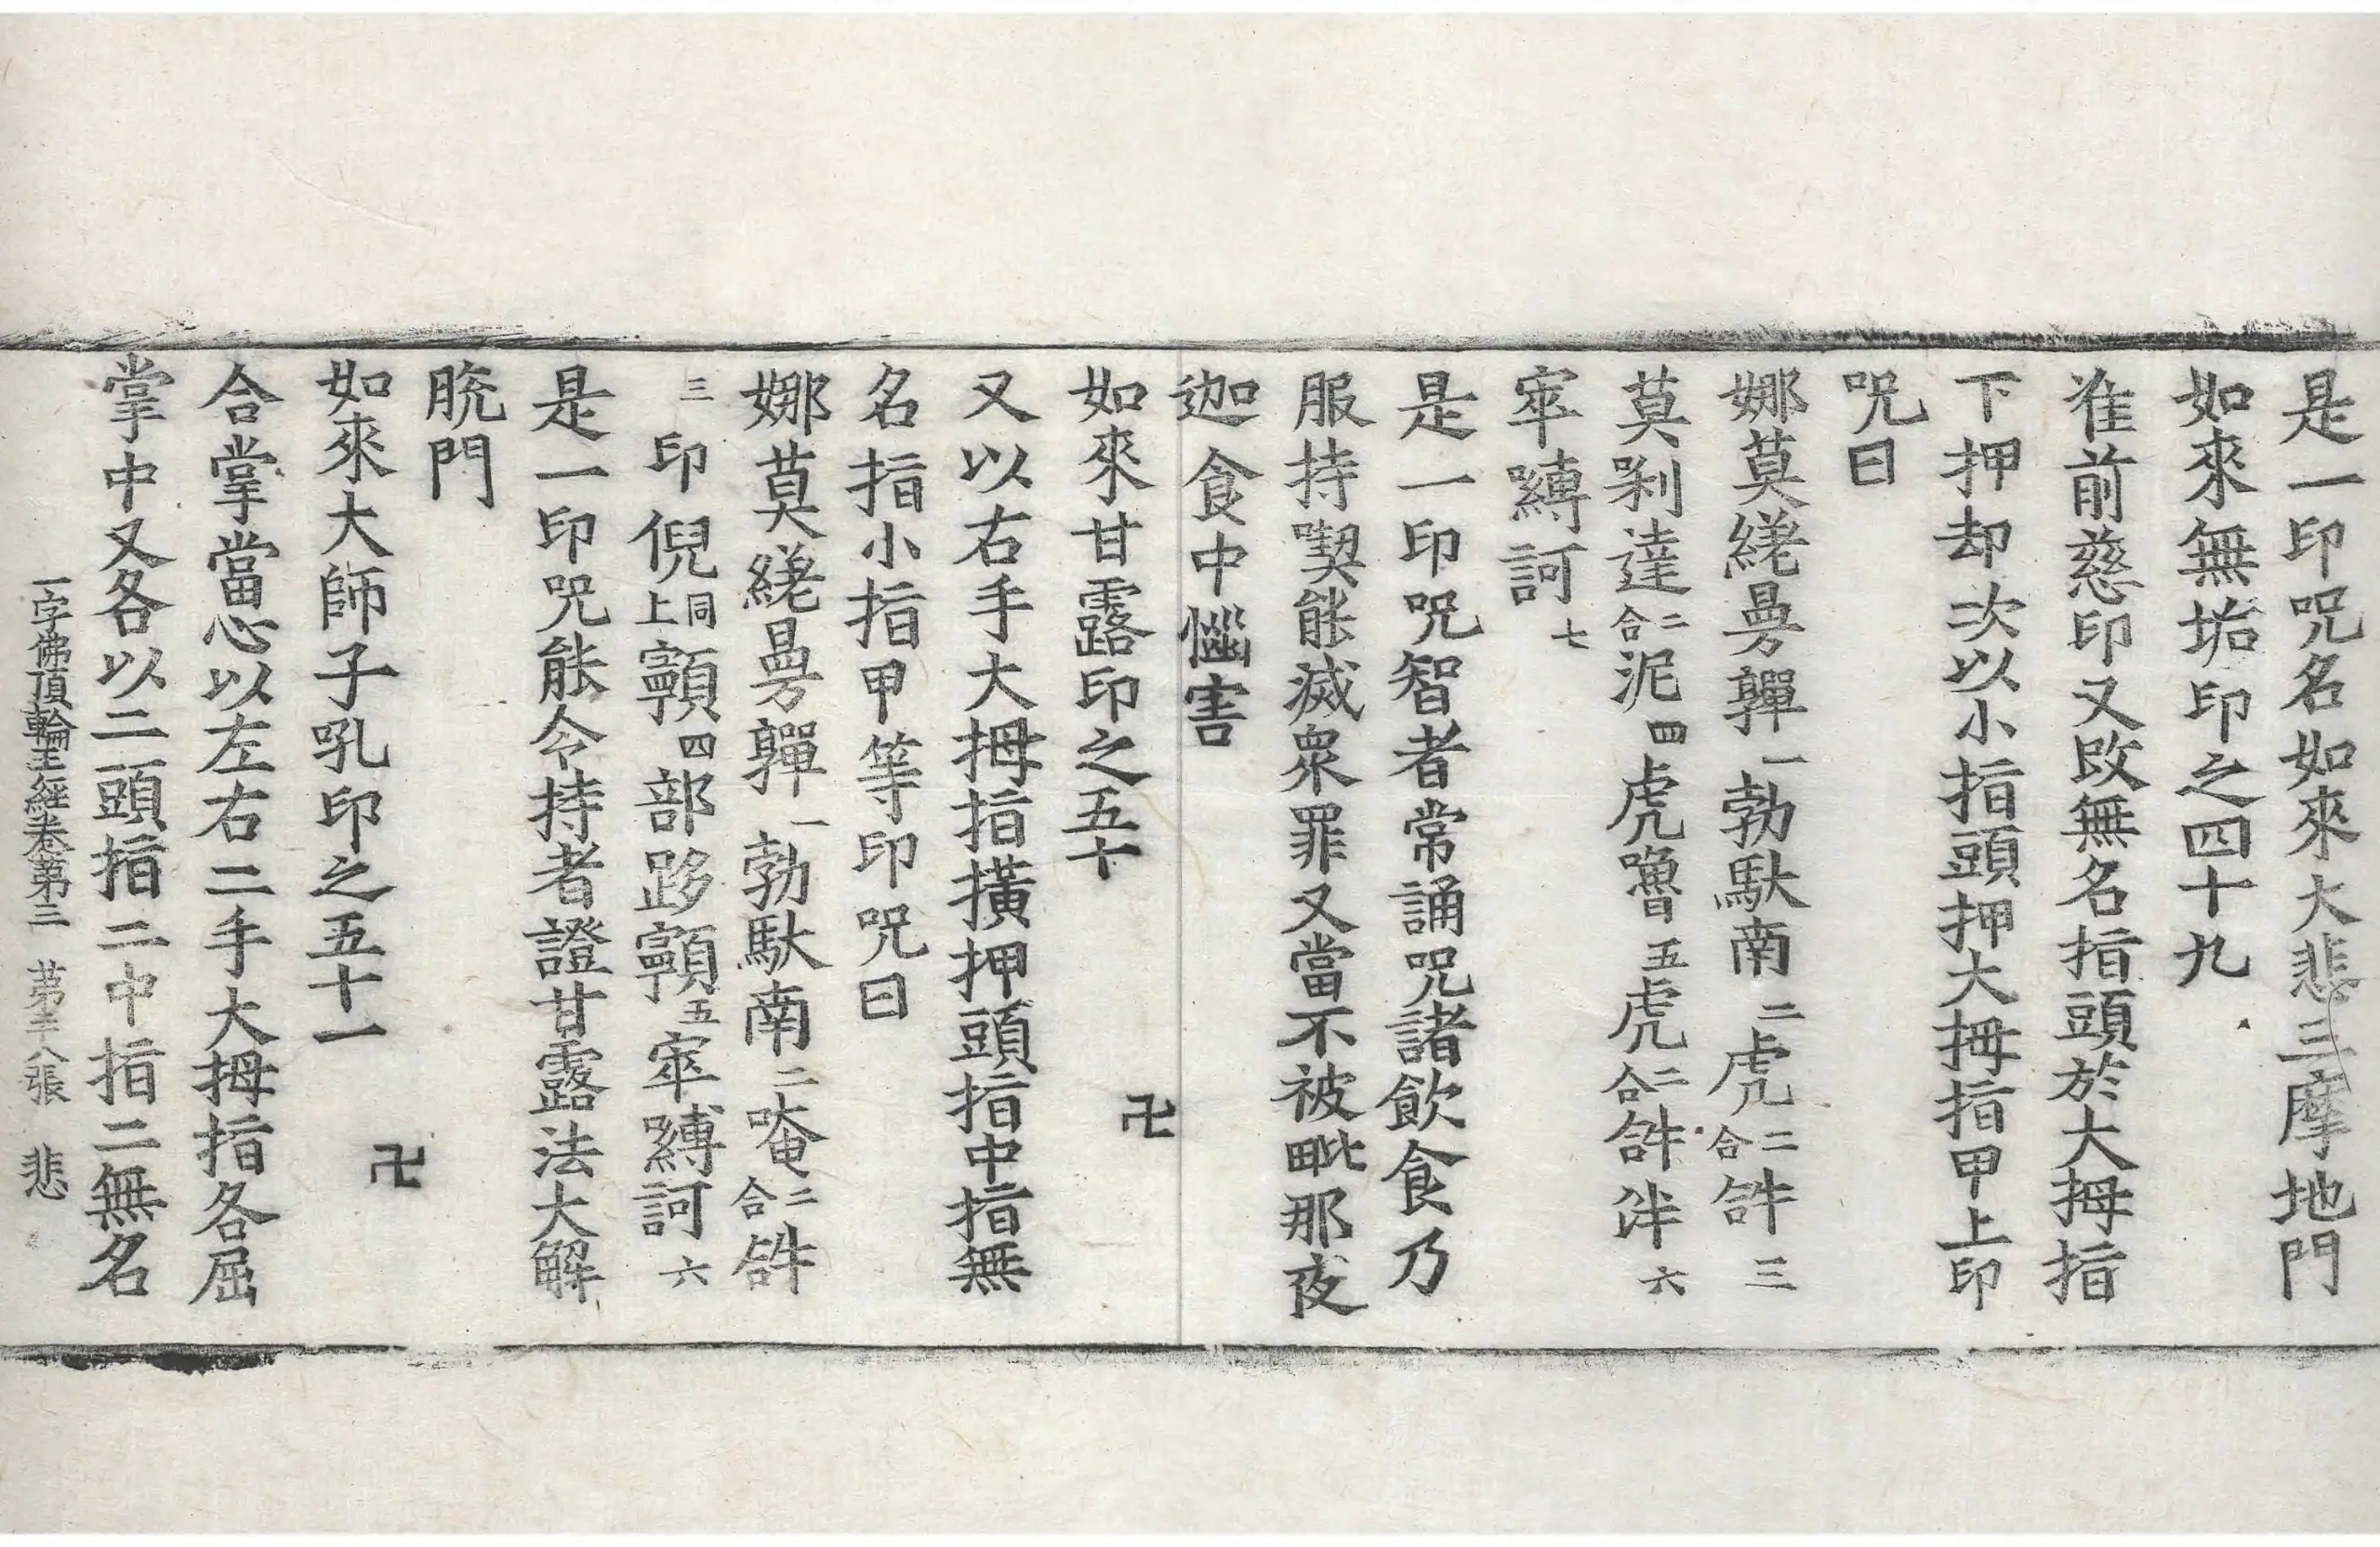 是一印咒名如來大悲三摩地門
如來無垢印之四十九
准前慈印又改無名指頭於大拇指
下押却次以小指頭押大拇指甲上印
咒曰
娜莫縒曼嚲一勃馱南二虎二合𤙖三
莫剎達二合泥四虎嚕五虎二合𤙖泮六
窣嚩訶七
是一印咒智者常誦咒諸飲食乃
服持喫能滅衆罪又當不被毗那夜
迦食中惱害
如來甘露印之五十
卍
又以右手大拇指橫押頭指中指無
名指小指甲等印咒曰
娜莫縒曼嚲一勃馱南二唵二合𤙖
三印倪同上顫四部跢顫五窣嚩訶六
是一印咒能令持者證甘露法大解
脫門
如來大師子吼印之五十一
卍
合掌當心以左右二手大拇指各屈
掌中又各以二頭指二中指二無名
一字佛頂輪王經卷第三 第十八張 悲